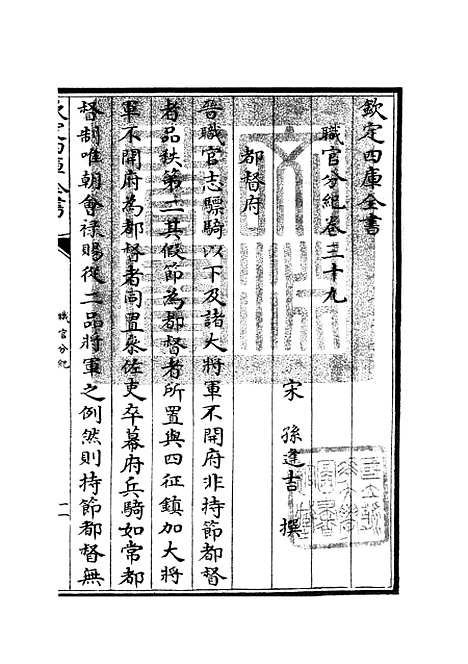 欽定四庫全書
職官分紀卷三十九
宋 孫逢吉 撰
都督府
晉職官志驃騎以下及諸大將軍不開府非持節都督
者品秩第二其假節為都督者所置與四征鎮加大將
軍不開府為都督者同置參佐吏卒幕府兵騎如常都
督制唯朝會祿賜從二品將軍之例然則持節都督無
欽定四庫全書
職官分紀